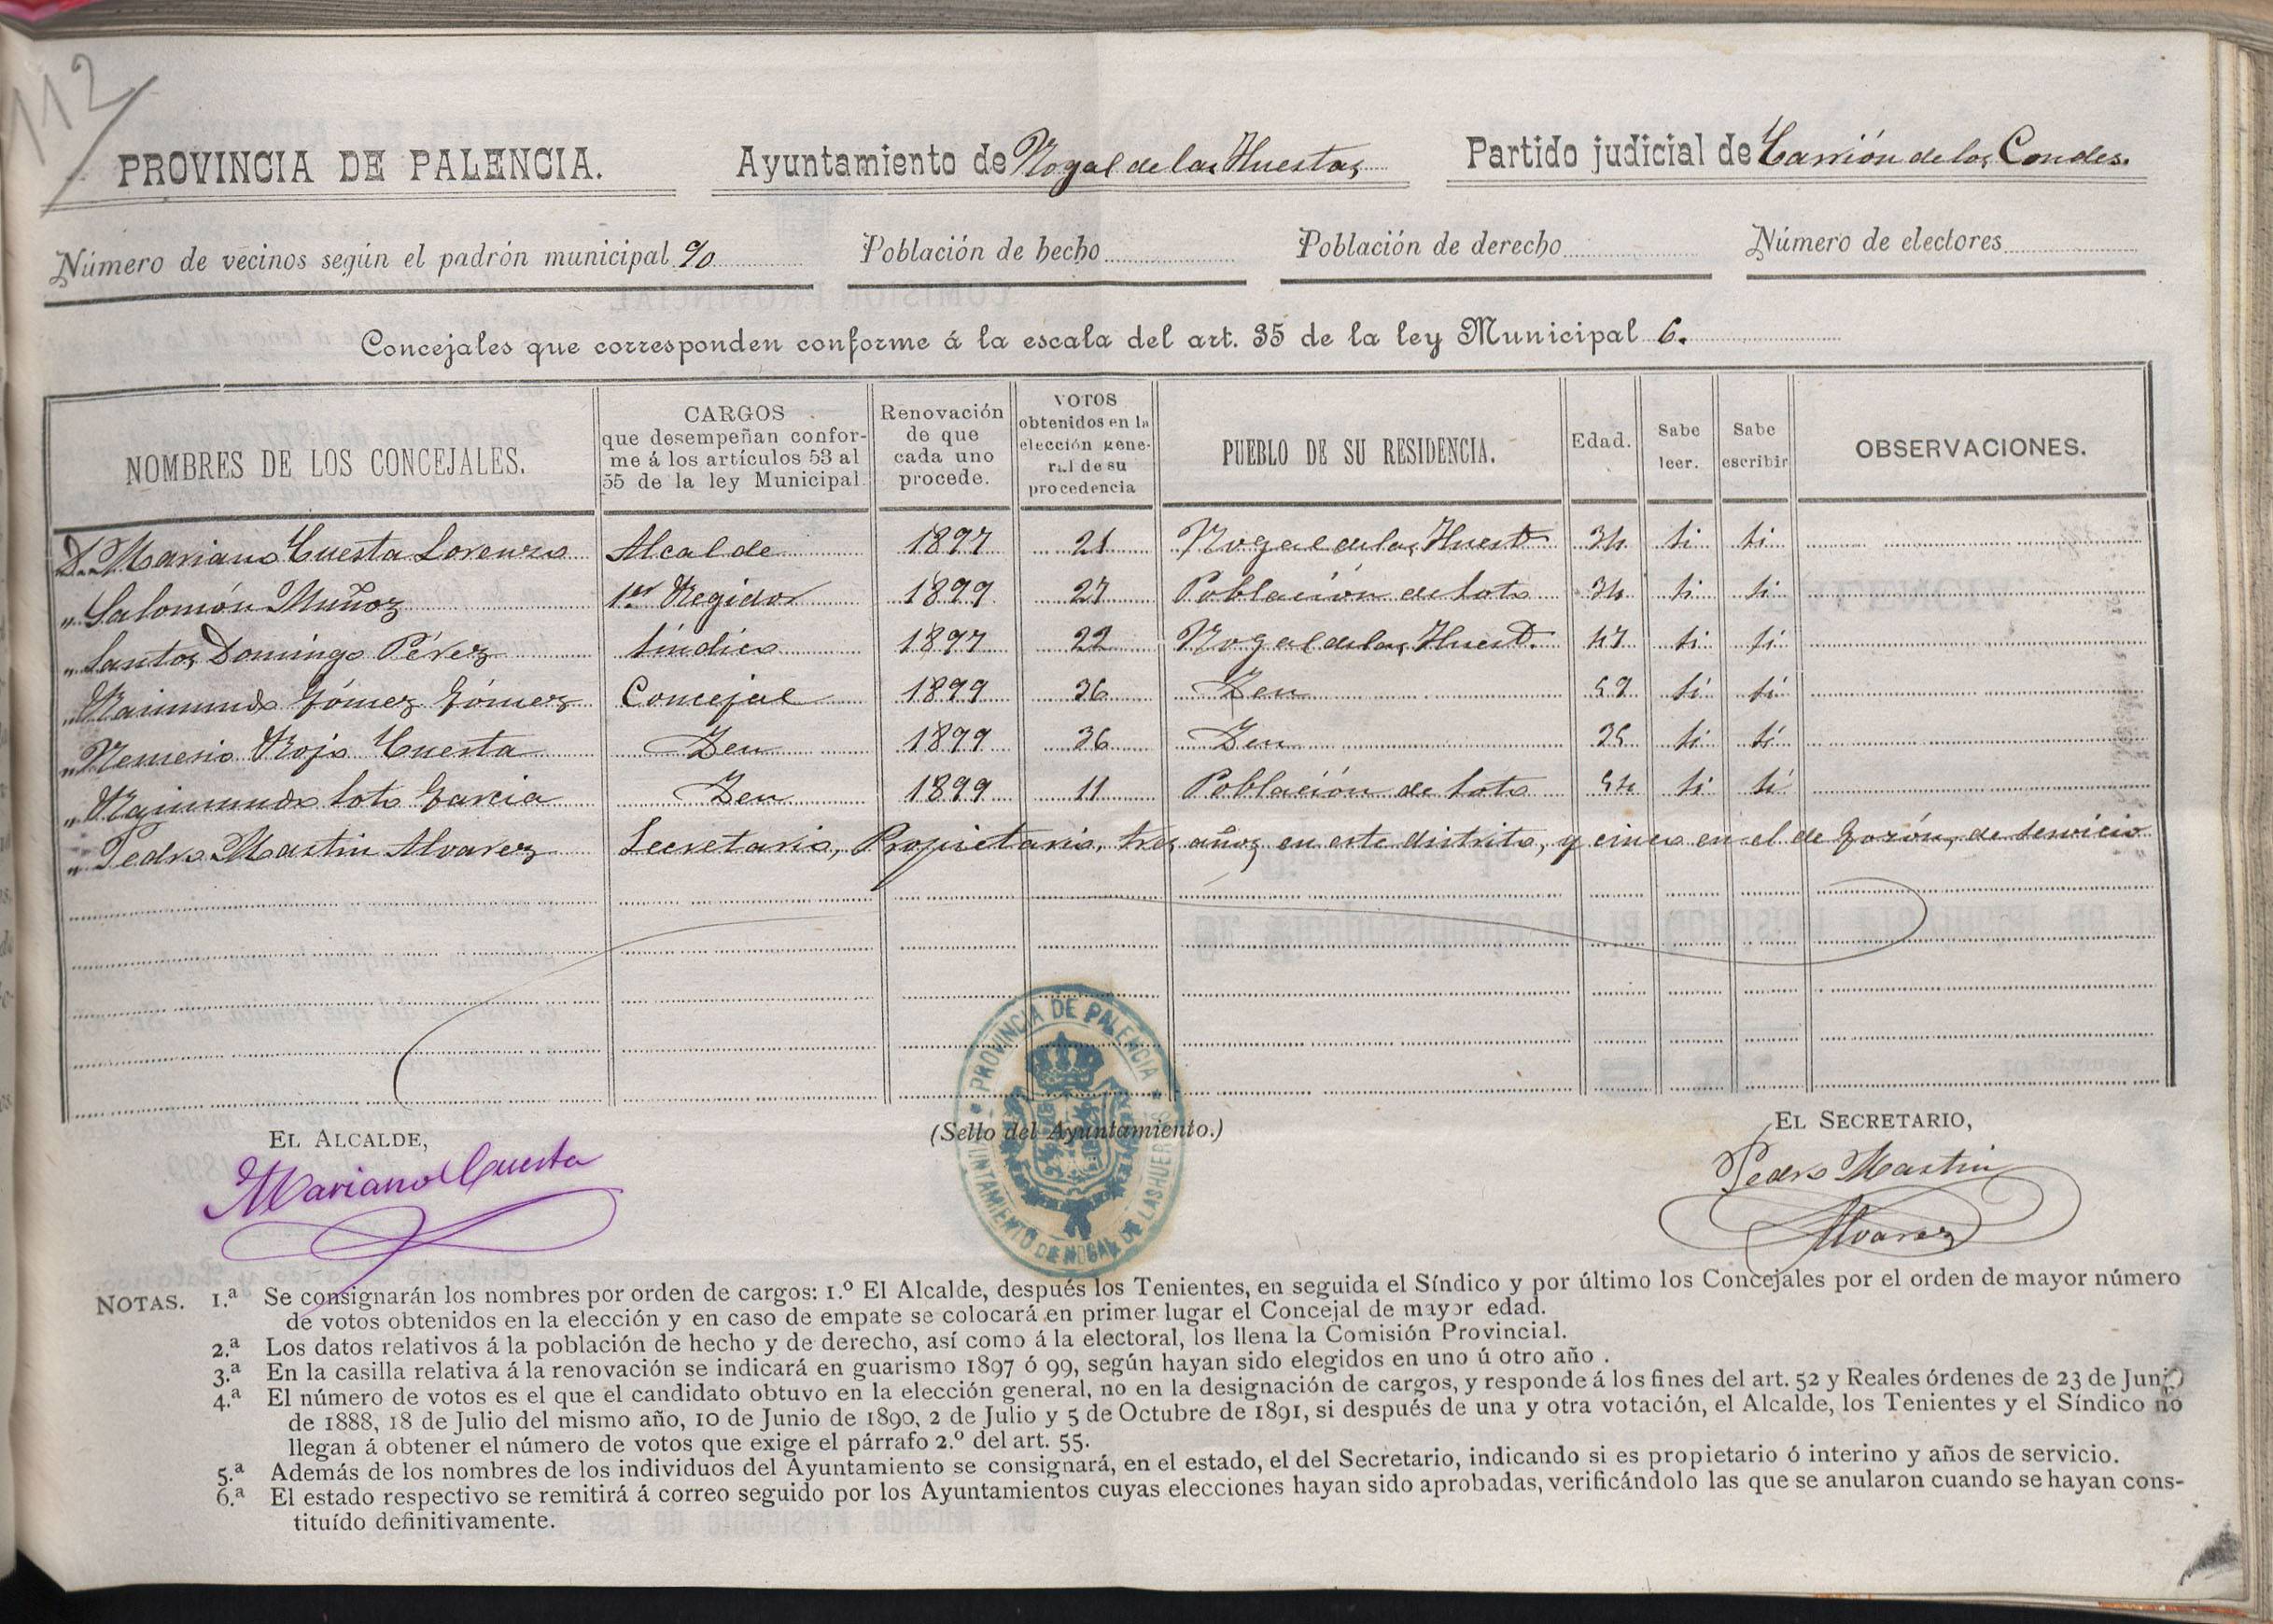 112
PROVINCIA DE PALENCIA. Ayuntamiento de Nogal de las Huestas Partido judicial de Carrión de los Condes.
Número de vecinos según el padrón municipal 90 Población de hecho Población de derecho Número de electores
Concejales que corresponden conforme á la escala del art. 35 de la ley Municipal 6.
NOMBRES DE LOS CONCEJALES. CARGOS que desempeñan conforme á los artículos 53 al 55 de la ley Municipal Renovación de que cada uno procede. VOTOS obtenidos en la elección general de su procedencia PUEBLO DE SU RESIDENCIA. Edad. Sabe leer. Sabe escribir OBSERVACIONES.
D. Mariano Cuesta Lorenzo Alcalde 1897 21 Nogal de las Huest.s 34 si si
" Salomón Muñoz 1.er Regidor 1899 27 Población de Soto 34 si si
" Santos Domingo Pérez Síndico 1897 22 Nogal de las Huest. 47 si sí
" Raimundo Gómez Gómez Concejal 1899 36 Iden 59 sí sí
" Nemesio Rojo Cuesta Iden 1899 36 Iden 35 si sí
" Raimundo Soto Garcia Iden 1899 11 Población de Soto 54 si sí
" Pedro Martin Alvarez Secretario, Propietario, tres años en este distrito, y cinco en el de Gozón, de servicio
PROVINCIA DE PALENCIA
AYUNTAMIENTO DE NOGAL DE LAS HUERTAS
EL ALCALDE, (Sello del Ayuntamiento.) EL SECRETARIO,
Mariano Cuesta Pedro Martin
Alvarez
NOTAS. 1.ª Se consignarán los nombres por orden de cargos: 1.º El Alcalde, después los Tenientes, en seguida el Síndico y por último los Concejales por el orden de mayor número
de votos obtenidos en la elección y en caso de empate se colocará en primer lugar el Concejal de mayor edad.
2.ª Los datos relativos á la población de hecho y de derecho, así como á la electoral, los llena la Comisión Provincial.
3.ª En la casilla relativa á la renovación se indicará en guarismo 1897 ó 99, según hayan sido elegidos en uno ú otro año.
4.ª El número de votos es el que el candidato obtuvo en la elección general, no en la designación de cargos, y responde á los fines del art. 52 y Reales órdenes de 23 de Junio
de 1888, 18 de Julio del mismo año, 10 de Junio de 1890, 2 de Julio y 5 de Octubre de 1891, si después de una y otra votación, el Alcalde, los Tenientes y el Síndico no
llegan á obtener el número de votos que exige el párrafo 2.º del art. 55.
5.ª Además de los nombres de los individuos del Ayuntamiento se consignará, en el estado, el del Secretario, indicando si es propietario ó interino y años de servicio.
6.ª El estado respectivo se remitirá á correo seguido por los Ayuntamientos cuyas elecciones hayan sido aprobadas, verificándolo las que se anularon cuando se hayan cons-
tituído definitivamente.